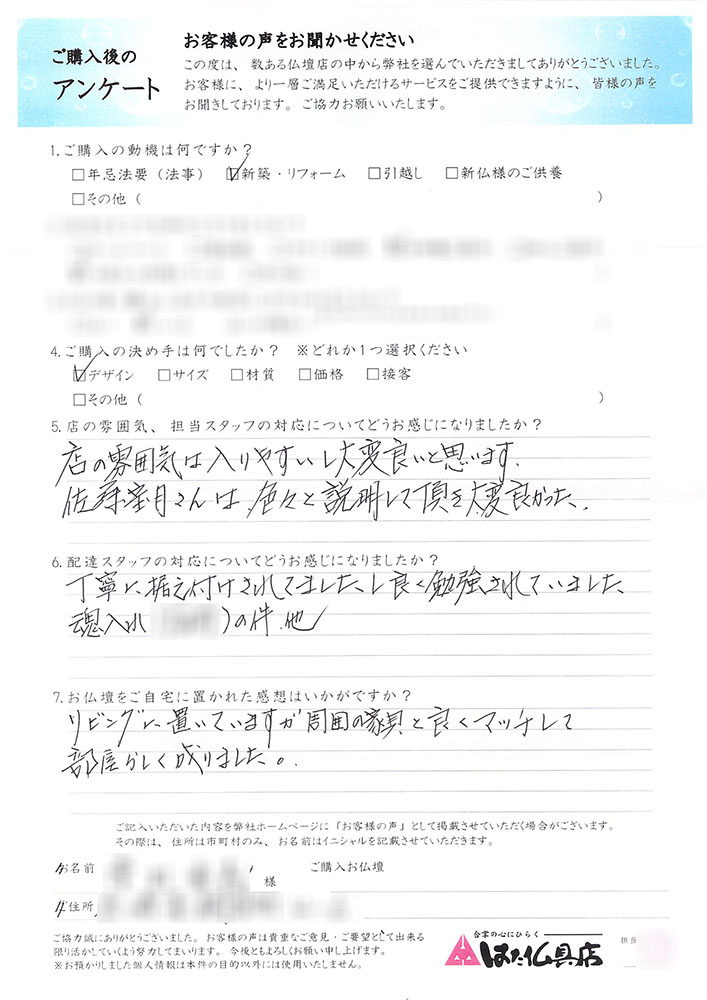 ご購入後の
アンケート
お客様の声をお聞かせください
この度は、数ある仏壇店の中から弊社を選んでいただきましてありがとうございました。
お客様に、より一層ご満足いただけるサービスをご提供できますように、皆様の声を
お聞きしております。ご協力お願いいたします。
1.ご購入の動機は何ですか？
□年忌法要（法事） ☑新築・リフォーム □引越し □新仏様のご供養
□その他（ ）
4.ご購入の決め手は何でしたか？ ※どれか1つ選択ください
☑デザイン □サイズ □材質 □価格 □接客
□その他（ ）
5.店の雰囲気、担当スタッフの対応についてどうお感じになりましたか？
店の雰囲気は入りやすいし大変良いと思います.
さんは、色々と説明して頂き大変良かった.
6.配達スタッフの対応についてどうお感じになりましたか？
丁寧に据え付けされてましたし良く勉強されていました
魂入れ )の件.他
7.お仏壇をご自宅に置かれた感想はいかがですか？
リビングに置いていますが周囲の家具と良くマッチして
部屋らしく成りました。
ご記入いただいた内容を弊社ホームページに「お客様の声」として掲載させていただく場合がございます。
その際は、住所は市町村のみ、お名前はイニシャルを記載させていただきます。
お名前 様 ご購入お仏壇
ご住所
ご協力誠にありがとうございました。お客様の声は貴重なご意見・ご要望として出来る
限り活かしていくよう努力してまいります。今後ともよろしくお願い申し上げます。
※お預かりしました個人情報は本件の目的以外には使用いたしません。
合掌の心にひらく
はた仏具店
担当